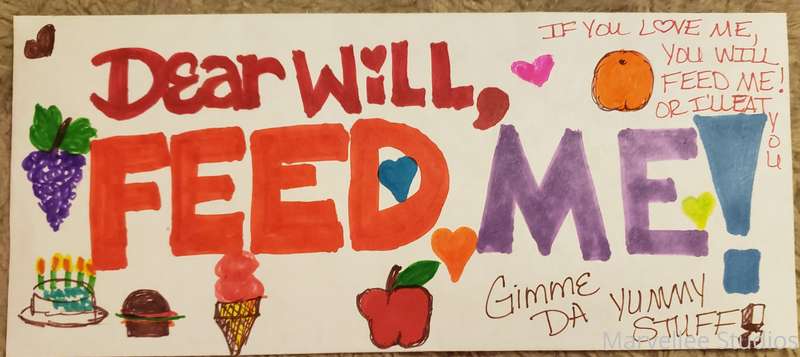 Dear Will,
FEED ME!
IF YOU LOVE ME,
YOU WILL
FEED ME!
OR I'LL EAT
YOU
GIMME
DA YUMMY
STUFF!
Marvellee Studios